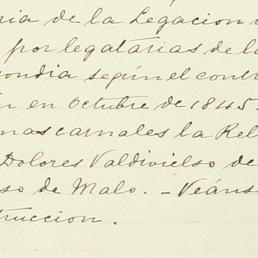 ria de la Legacion
por legatarias de l
ondia según el cont
en Octubre de 1845.
nas carnales la Rel
Dolores Valdivielso de
so de Malo. - Veáns
truccion.